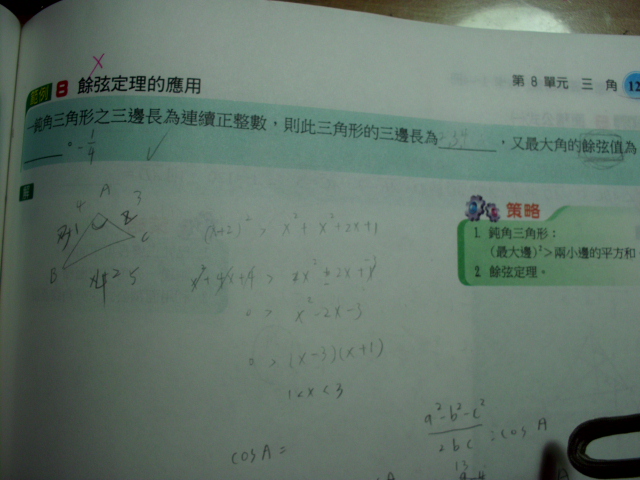 第 8 單元 三 角 12
範例 8 餘弦定理的應用
一鈍角三角形之三邊長為連續正整數，則此三角形的三邊長為 2,3,4 ，又最大角的餘弦值為
。 -1/4
策略
1. 鈍角三角形：
(最大邊)²>兩小邊的平方和
2. 餘弦定理。
A
4 3
C
B
5
(x+2)² > x² + x²+2x+1
> 2x²+2x+1
0 > x²-2x-3
0 > (x-3)(x+1)
1<x<3
a²-b²-c²
2bc = cos A
cos A =